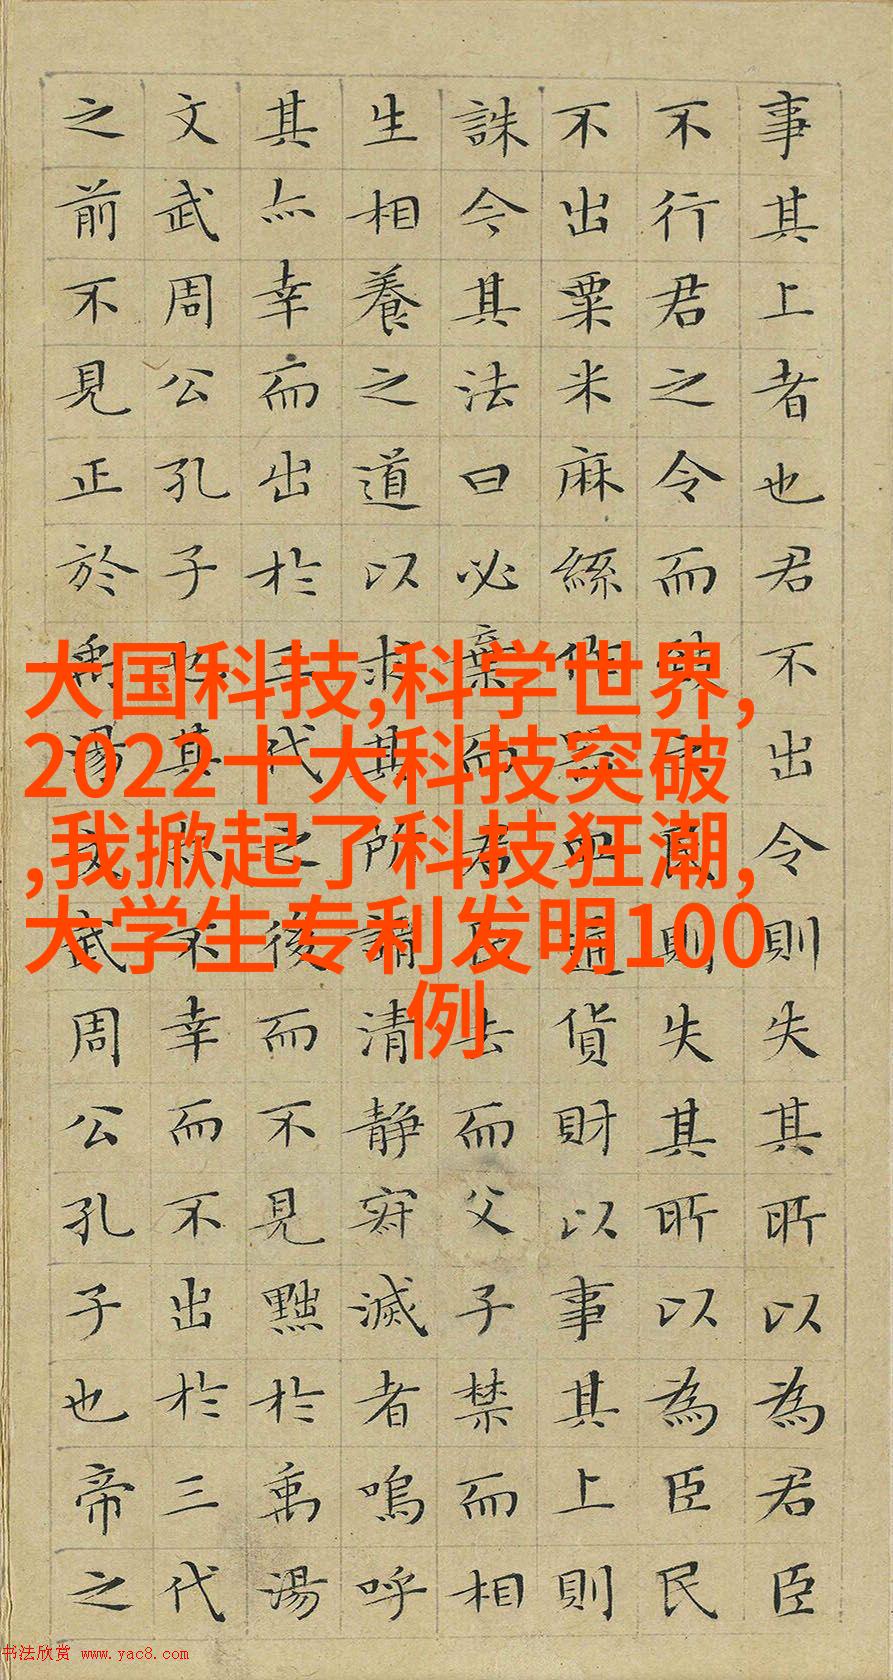 事其上者也君不出令則失其所以為君臣
不行君之令而致之民則失其所以為臣民
不出粟米麻絲作器皿通貨財以事其上則
誅今其法曰必棄而君臣去而父子禁而相
生相養之道以求其所謂清静寂滅者嗚呼
其亦幸而出於三代之後而不見黜於禹湯
文武周公孔子也其亦不幸而不出於三代
之前不見正於禹湯文武周公孔子也帝之
大国科技,科学世界,
2022十大科技突破
,我掀起了科技狂潮,
大学生专利发明100
例
书法欣赏 www.yac8.com